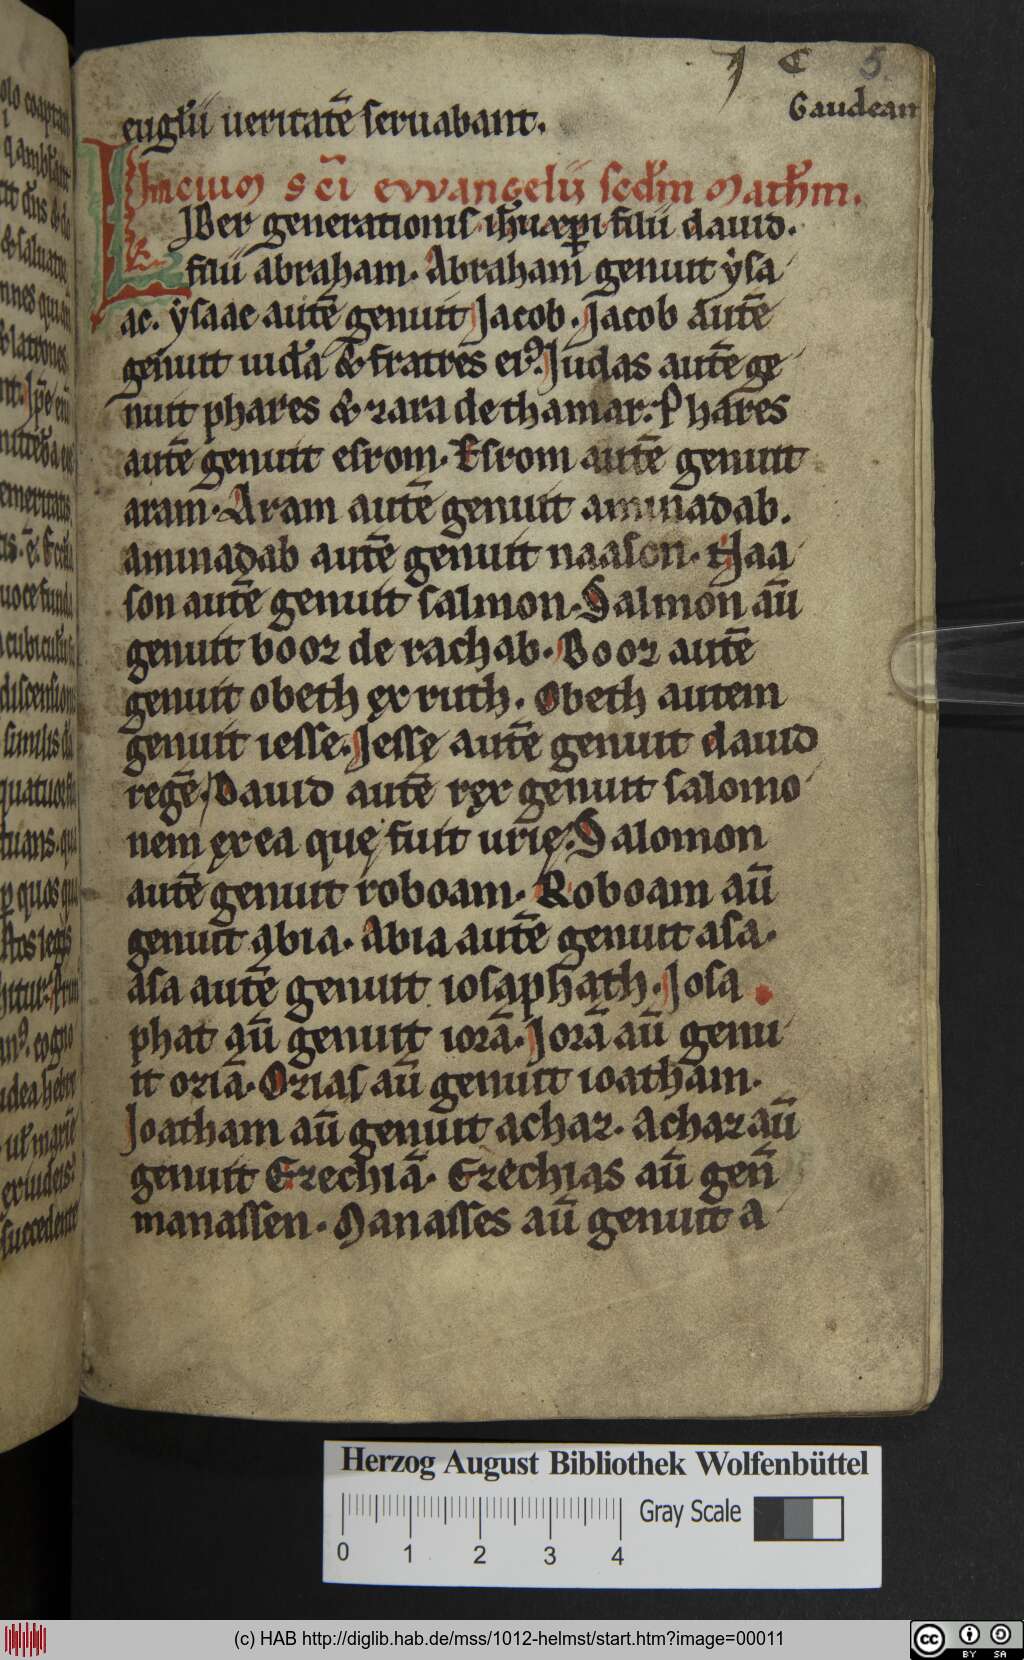 5
Gaudean
euglii ueritatē seruabant.
Inicium sci evvangelii scdm Mathm.
Liber generationis ihu xpi filii dauid.
filii abraham. Abraham genuit ysa
ac. ysaac autē genuit Jacob. Jacob autē
genuit iudā & fratres ei9. Judas autē ge
nuit phares & zara de thamar. Phares
autē genuit esrom. Esrom autē genuit
aram. Aram autē genuit aminadab.
aminadab autē genuit naason. Naa
son autē genuit salmon. Salmon aū
genuit booz de rachab. Booz autē
genuit obeth ex ruth. Obeth autem
genuit iesse. Jesse autē genuit dauid
regē. Dauid autē rex genuit salomo
nem ex ea quę fuit urię. Salomon
autē genuit roboam. Roboam aū
genuit abia. Abia autē genuit asa.
asa autē genuit iosaphath. Josa
phat aū genuit iorā. Jorā aū genu
it oziā. Ozias aū genuit ioatham.
Joatham aū genuit achaz. Achaz aū
genuit Ezechiā. Ezechias aū geñ
manassen. Manasses aū genuit a
Herzog August Bibliothek Wolfenbüttel
0 1 2 3 4
Gray Scale
(c) HAB http://diglib.hab.de/mss/1012-helmst/start.htm?image=00011
cc BY SA